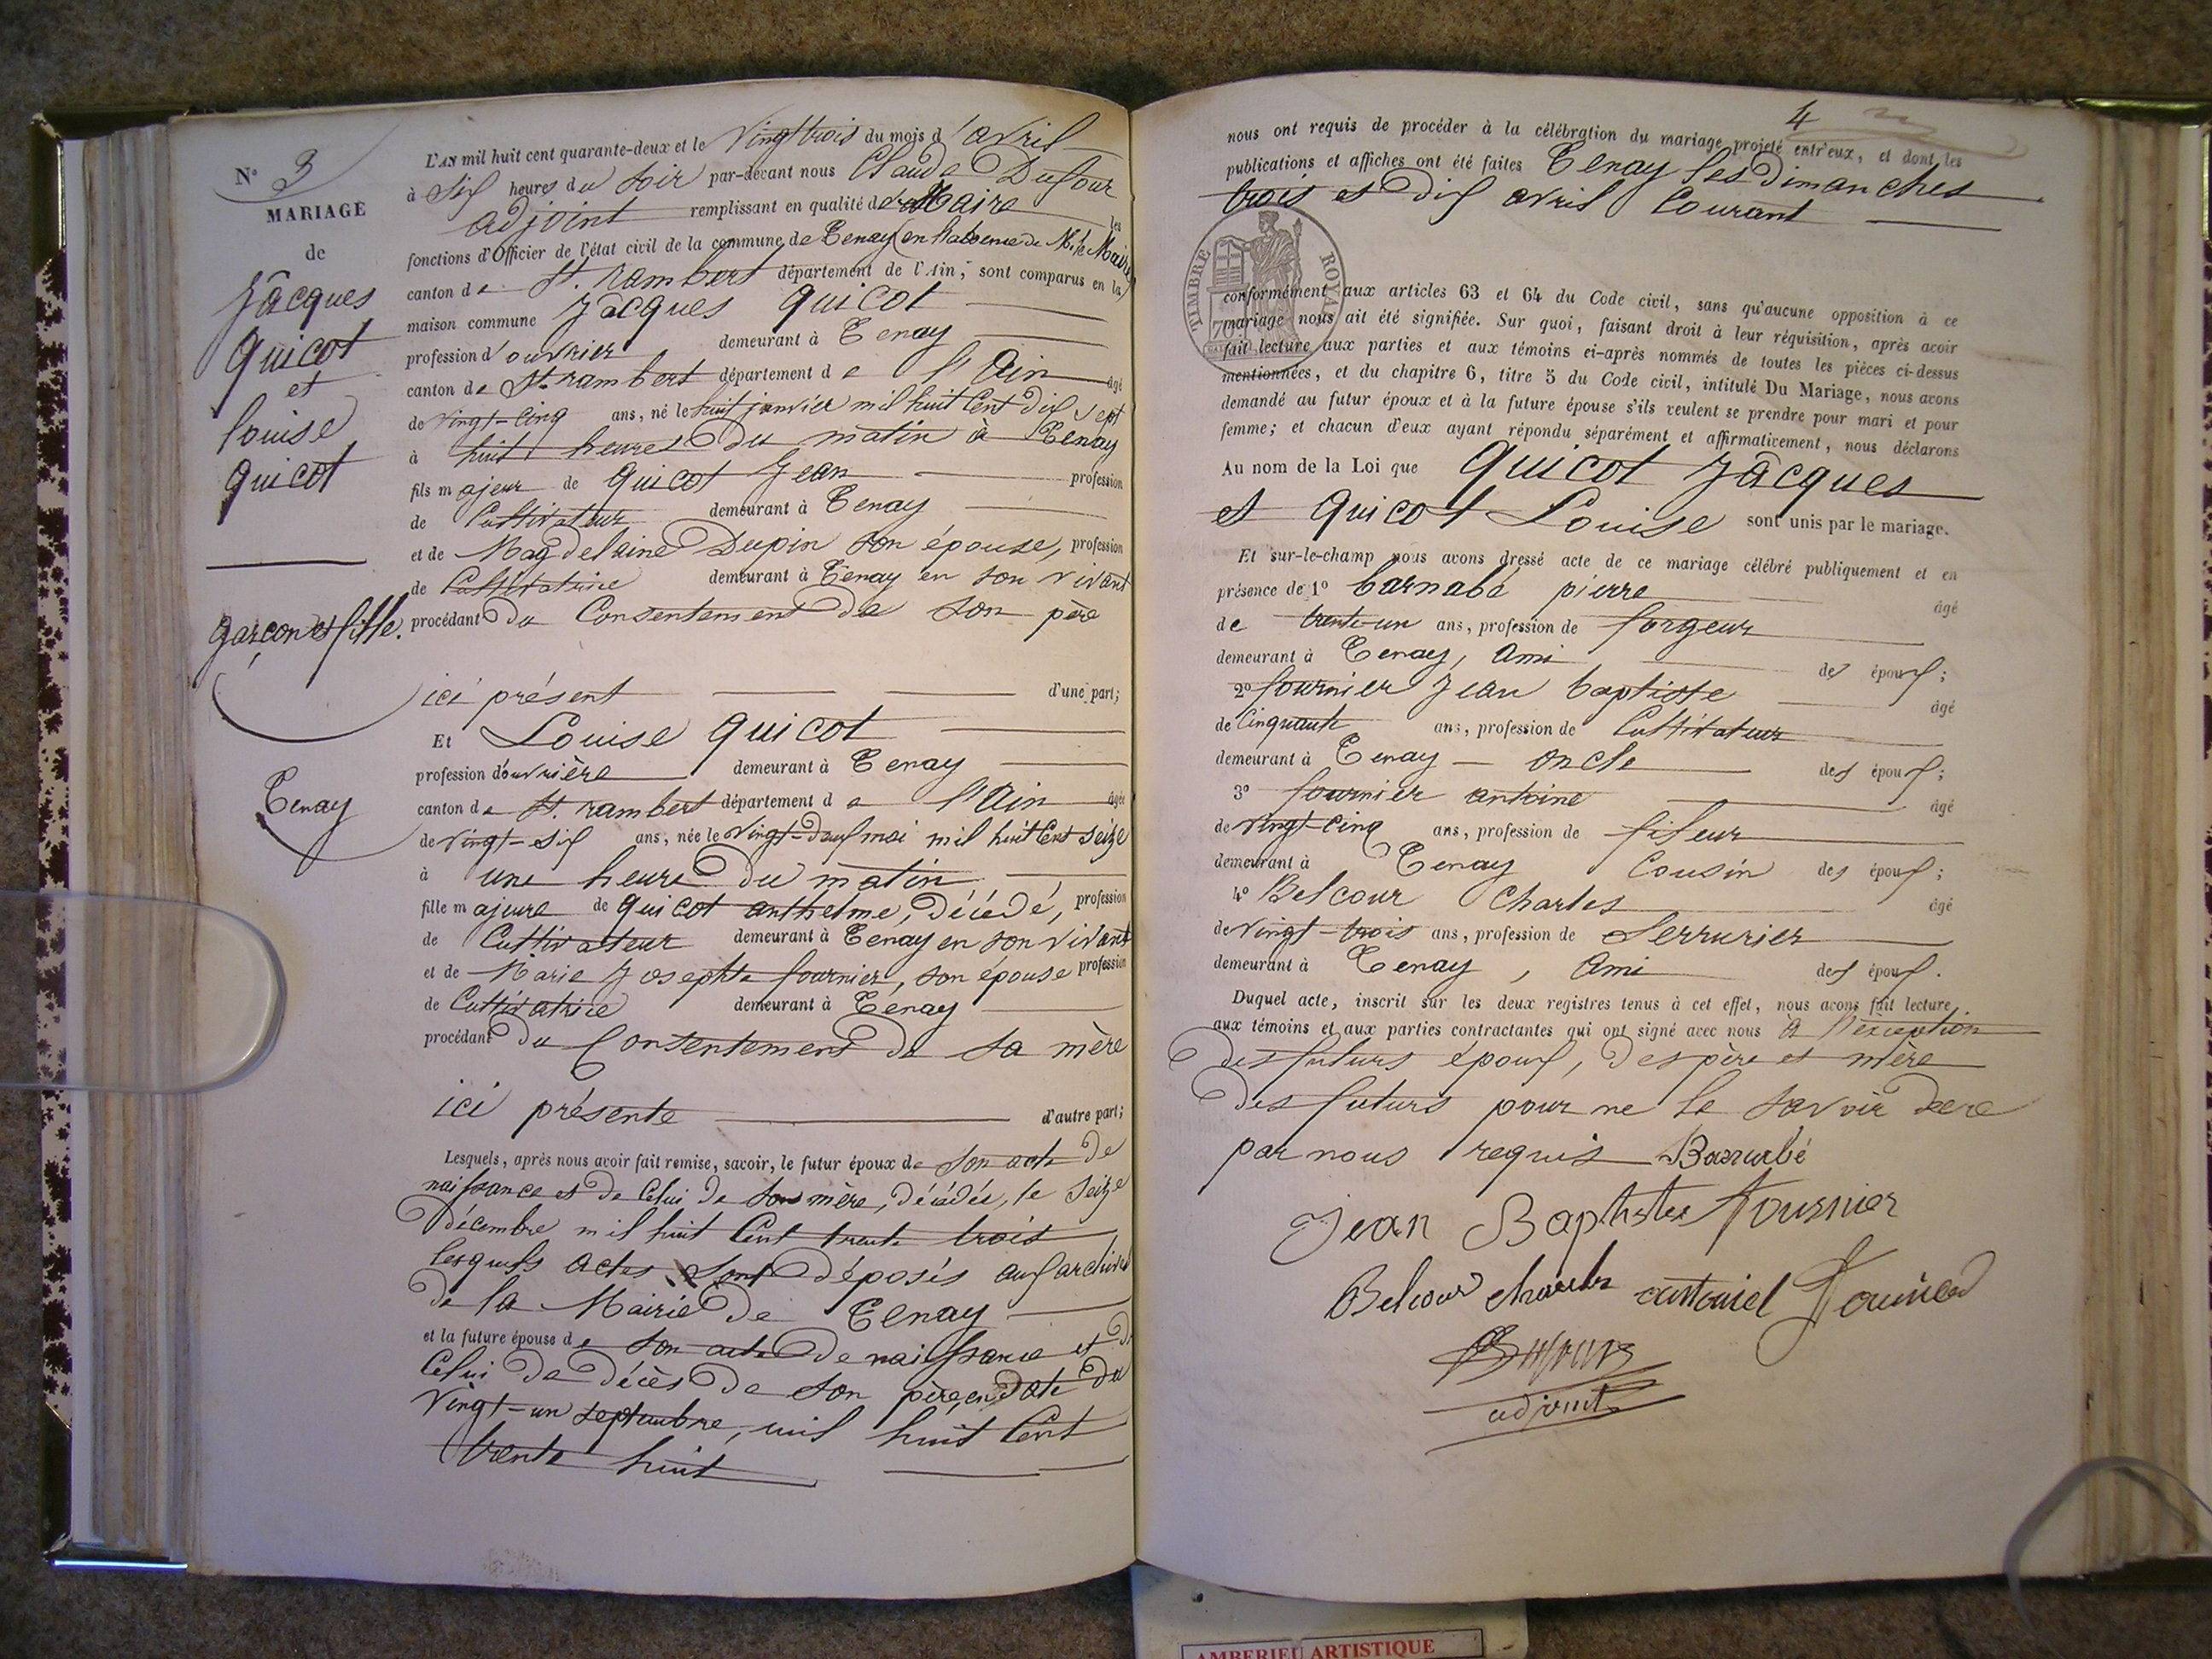 N° 3
MARIAGE
de
Jâcques
quicot
et
louise
quicot
garçon et fille.
Tenay
L'AN mil huit cent quarante-deux et le Vingt trois du mois d'avril
à Six heures du Soir par-devant nous Claude Dufour
adjoint remplissant en qualité de Maire les
fonctions d'Officier de l'état civil de la commune de Tenay en l'absence de Mr. le Maire
canton de St. rambert département de l'Ain, sont comparus en la
maison commune Jâcques quicot
profession d'ouvrier demeurant à Tenay
canton de St. rambert département de l'Ain âgé
de Vingt-Cinq ans, né le huit janvier mil huit Cent dix sept
à huit heures du matin à Tenay
fils majeur de quicot Jean profession
de Cultivateur demeurant à Tenay
et de Magdelaine Dupin son épouse, profession
de Cultivatrice demeurant à Tenay en son vivant
procédant du Consentement de son père
ici présent d'une part;
Et Louise quicot
profession d'ouvrière demeurant à Tenay
canton de St. rambert département de l'Ain âgée
de vingt-six ans, née le Vingt-deux mai mil huit Cent seize
à une heure du matin
fille majeure de quicot anthelme, décédé, profession
de Cultivateur demeurant à Tenay en son vivant
et de Marie Josephte fournier, son épouse profession
de Cultivatrice demeurant à Tenay
procédant du Consentement de sa mère
ici présente d'autre part;
Lesquels, après nous avoir fait remise, savoir, le futur époux de son acte de
naissance et de Celui de sa mère, décédée, le Seize
décembre mil huit Cent trente trois
lesquels actes sont déposés aux archives
de la Mairie de Tenay
et la future épouse de son acte de naissance et de
Celui de décès de son père, en date du
Vingt-un septembre, mil huit Cent
trente huit
4
nous ont requis de procéder à la célébration du mariage projeté entr'eux, et dont les
publications et affiches ont été faites Tenay les dimanches
trois et dix avril Courant
TIMBRE ROYAL
conformément aux articles 63 et 64 du Code civil, sans qu'aucune opposition à ce
mariage nous ait été signifiée. Sur quoi, faisant droit à leur réquisition, après avoir
fait lecture aux parties et aux témoins ci-après nommés de toutes les pièces ci-dessus
mentionnées, et du chapitre 6, titre 5 du Code civil, intitulé Du Mariage, nous avons
demandé au futur époux et à la future épouse s'ils veulent se prendre pour mari et pour
femme; et chacun d'eux ayant répondu séparément et affirmativement, nous déclarons
Au nom de la Loi que quicot Jâcques
et quicot Louise sont unis par le mariage.
Et sur-le-champ nous avons dressé acte de ce mariage célébré publiquement et en
présence de 1° barnabé pierre âgé
de trente-un ans, profession de forgeur
demeurant à Tenay, ami des époux;
2° fournier Jean baptiste âgé
de Cinquante ans, profession de Cultivateur
demeurant à Tenay – oncle des époux;
3° fournier antoine âgé
de vingt-cinq ans, profession de fileur
demeurant à Tenay Cousin des époux;
4° Belcour Charles âgé
de vingt-trois ans, profession de Serrurier
demeurant à Tenay, ami des époux.
Duquel acte, inscrit sur les deux registres tenus à cet effet, nous avons fait lecture
aux témoins et aux parties contractantes qui ont signé avec nous à l'exception
des futurs époux, des père et mère
des futurs pour ne le savoir de ce
par nous requis Barnabé
Jean Baptiste fournier
Belcour charles antoine fournier
Dufour
adjoint
AMBERIEU ARTISTIQUE